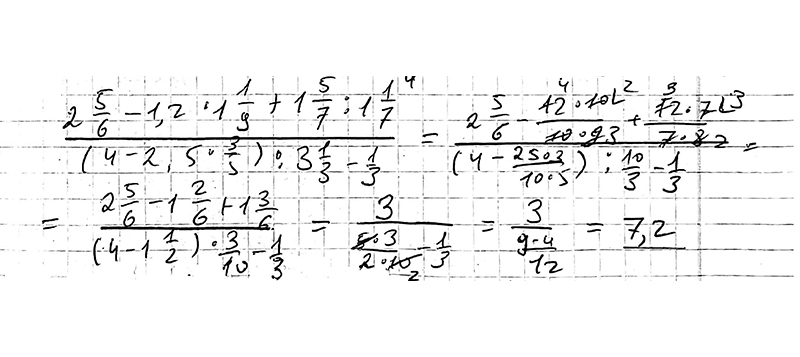 (2 5/6 - 1,2 · 1 1/9 + 1 5/7 : 1 1/7) / ((4 - 2,5 · 3/5) : 3 1/3 - 1/3) = (2 5/6 - 12·10/10·9 + 12·7/7·8) / ((4 - 25·3/10·5) : 10/3 - 1/3) =
= (2 5/6 - 1 2/6 + 1 3/6) / ((4 - 1 1/2) · 3/10 - 1/3) = 3 / (5·3/2·10 - 1/3) = 3 / (9-4/12) = 7,2